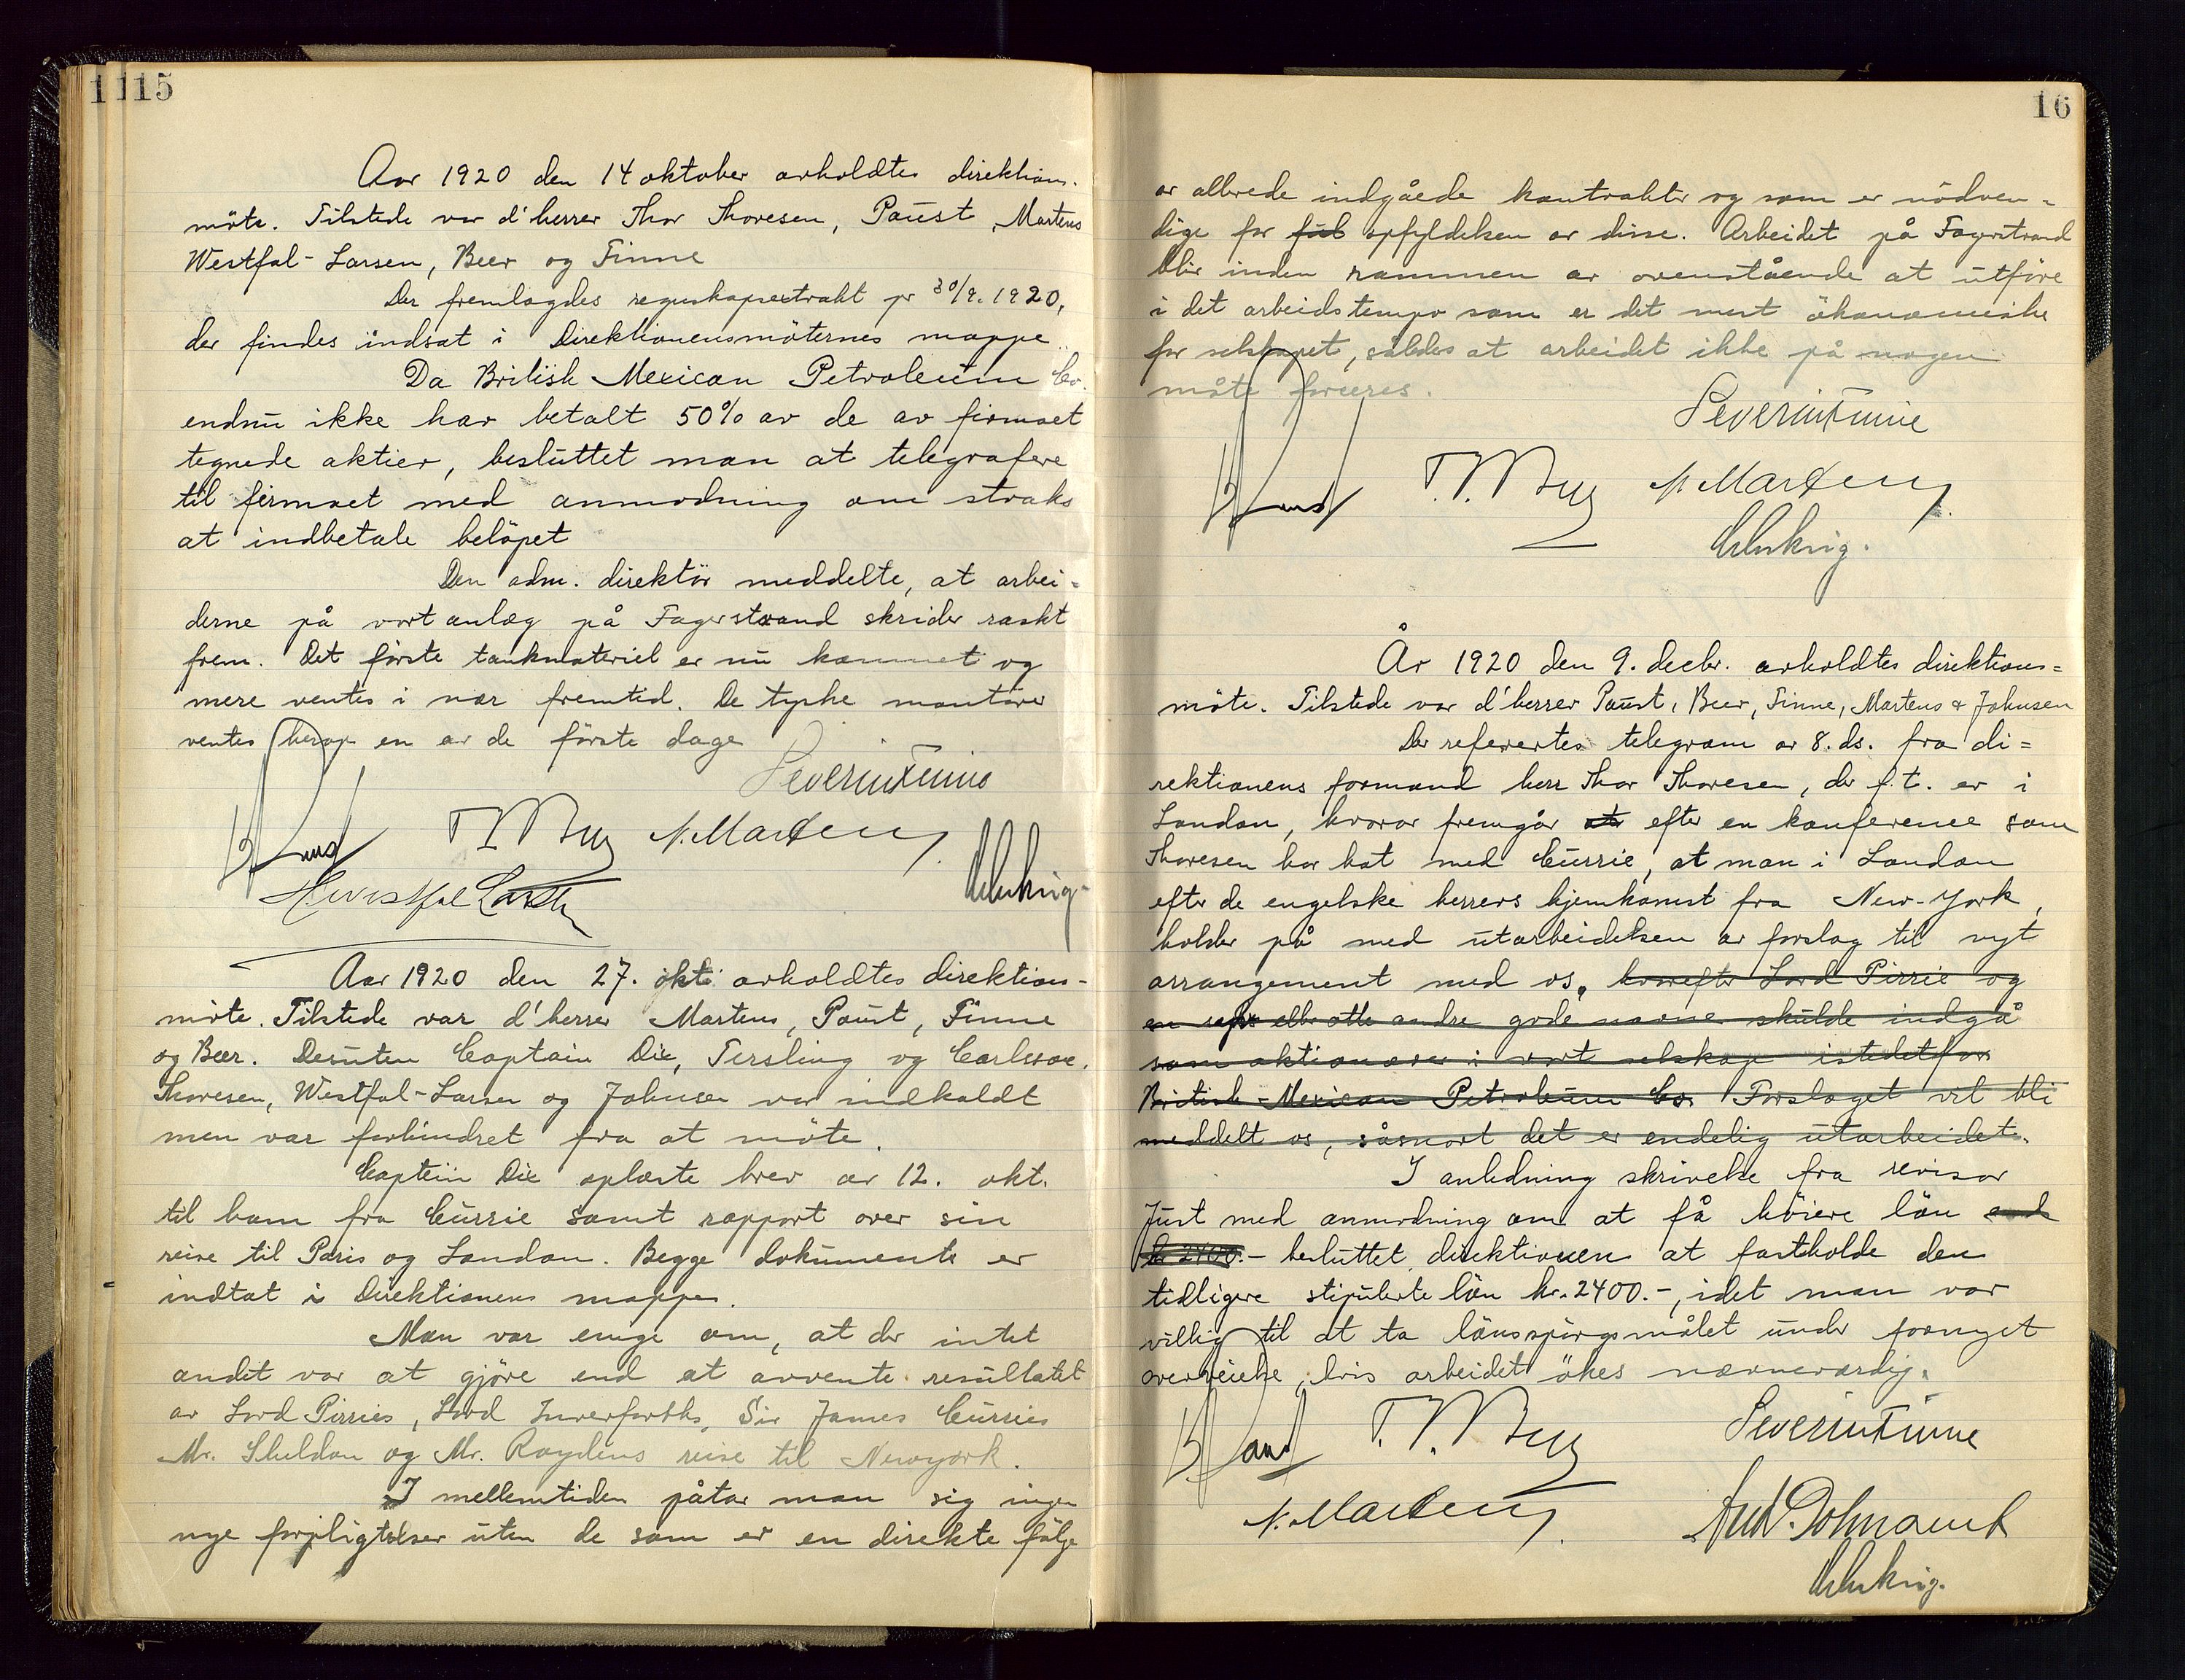 1 115
Aar 1920 den 14 oktober avholdtes direktions-
möte. Tilstede var d'herrer Thor Thoresen, Paust, Martens
Westfal-Larsen, Beer og Finne
Der fremlagdes regnskapsextrakt pr 30/9. 1920,
der findes indsat i Direktionensmöternes mappe.
Da British Mexican Petroleum Co.
endnu ikke har betalt 50% av de av firmaet
tegnede aktier, besluttet man at telegrafere
til firmaet med anmodning om straks
at indbetale belöpet
Den adm. direktör meddelte, at arbei-
derne på vort anlæg på Fagerstrand skrider raskt
frem. Det förste tankmateriel er nu kommet og
mere ventes i nær fremtid. De tyske montörer
ventes herop en av de förste dage
Severin Finne
Paust T. T. Beer N. Martens.
H. Westfal Larsen
Aar 1920 den 27. okt. avholdtes direktions-
möte. Tilstede var d'herrer Martens, Paust, Finne
og Beer. Desuten Captain Dix, Tersling og Carlsson.
Thoresen, Westfal-Larsen og Johnsen var indkaldt
men var forhindret fra at möte.
Captein Dix oplæste brev av 12. okt.
til ham fra Currie samt rapport over sin
reise til Paris og London. Begge dokumenter er
indtat i Direktionens mappe.
Man var enige om, at der intet
andet var at gjöre end at avvente resultatet
av Lord Pirries, Lord Inverforths, Sir James Curries
Mr. Sheldon og Mr. Roydens reise til Newyork.
I mellemtiden påtar man sig ingen
nye forpligtelser uten de som er en direkte fölge
16
av allerede indgåede kontrakter og som er nödven-
dige for ful opfyldelsen av disse. Arbeidet på Fagerstrand
blir inden rammen av ovenstående at utföre
i det arbeidstempo som er det mest ökonomiske
for selskapet, således at arbeidet ikke på nogen
måte forceres.
Severin Finne
Paust T. T. Beer N. Martens.
År 1920 den 9. decbr. avholdtes direktions-
möte. Tilstede var d'herrer Paust, Beer, Finne, Martens & Johnsen
Der refereertes telegram av 8. ds. fra di-
rektionens formand herr Thor Thoresen, der f.t. er i
London, hvorav fremgår at efter en konference som
Thoresen har hat med Currie, at man i London
efter de engelske herrers hjemkomst fra New-York,
holder på med utarbeidelsen av forslag til nyt
arrangement med os, hvorefter Lord Pirrie og
en syv eller otte andre gode navne skulde indgå
som aktionærer i vort selskap istedetfor
British-Mexican Petroleum Co. Forslaget vil bli
meddelt os, såsnart det er endelig utarbeidet.
I anledning skrivelse fra revisor
Just med anmodning om at få höiere lön end
kr 2400.- besluttet direktionen at fastholde den
tidligere stipulerte lön kr. 2400.-, idet man var
villig til at ta lönsspörgsmålet under fornyet
overveielse, hvis arbeidet ökes nævneværdig.
Paust T. T. Beer Severin Finne
N. Martens.